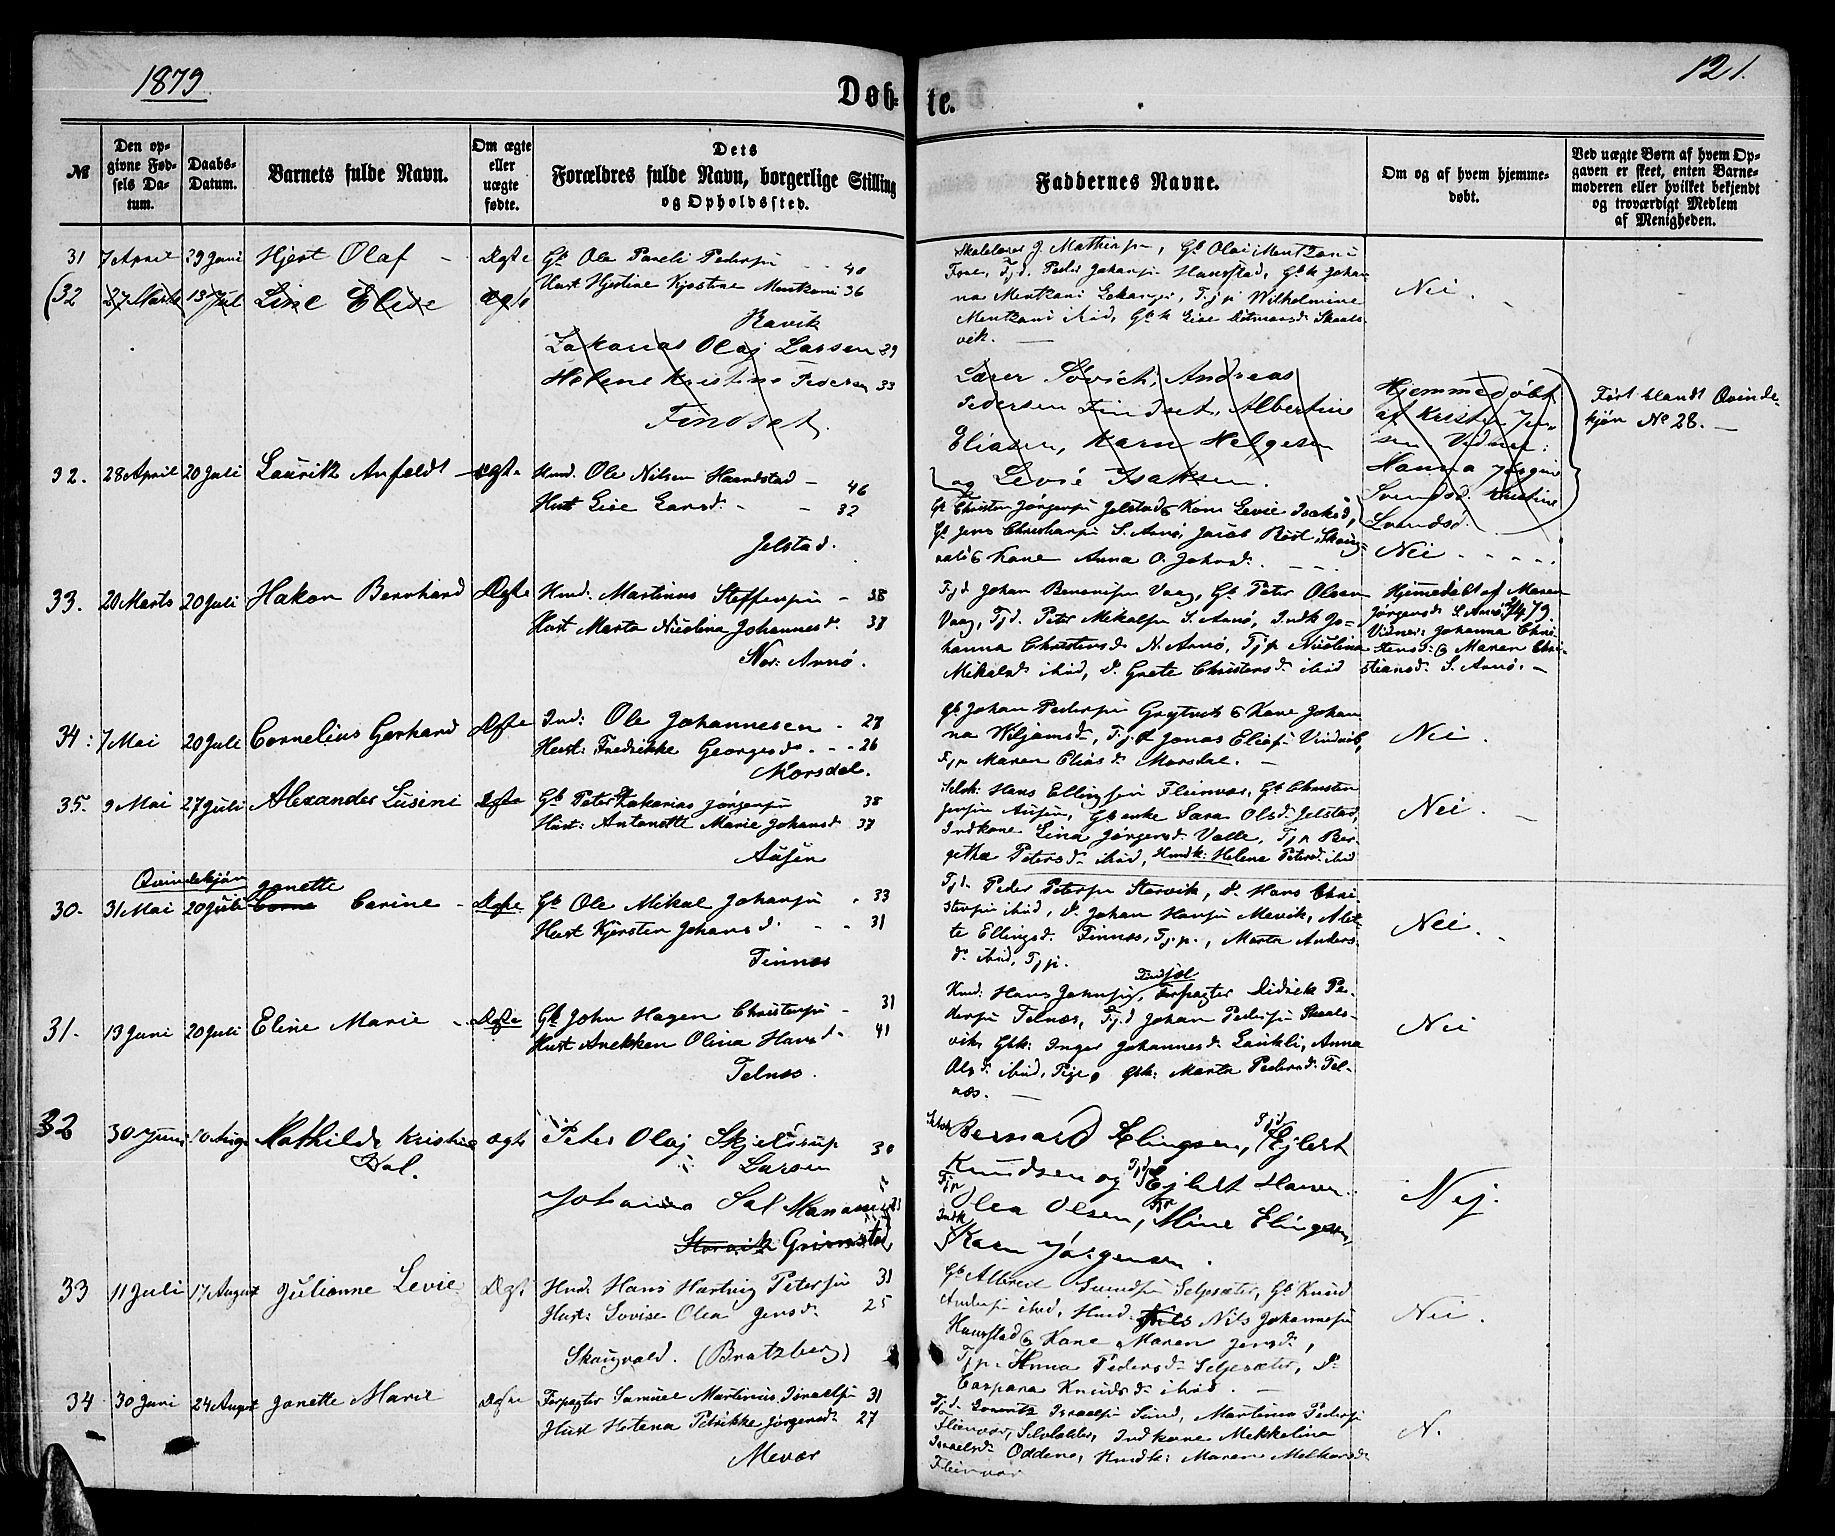 1879
121.
Døb-
te.
№
Den op-
givne Fød-
sels Da-
tum.
Daabs-
Datum.
Barnets fulde Navn.
Om ægte
eller
uægte
fødte.
Dets
Forældres fulde Navn, borgerlige Stilling
og Opholdssted.
Faddernes Navne.
Om og af hvem hjemme-
døbt.
Ved uægte Børn af hvem Op-
gaven er skeet, enten Barne-
moderen eller hvilket bekjendt
og troværdigt Medlem
af Menigheden.
31 7 April 29 Juni Hjert Olaf - Ægte
Gb. Ole Pareli Pedersen 40
Hust Hjertine Kjerstine Mentzoni 36
Ravik
Skolelærer J. Mathiesen, Gb. Olai Mentzoni
Fore, Tjd. Peder Johansen Haugstad, Gbk Johan
na Mentzoni, Tjp Wilhelmine
Mentzoni ibid, Gbk Lise Ditmarsd. Skaals-
vik.
Nei.
(32 27 Marts 13 Jul Line Elise Ægte
Zakarias Olaj Larsen 29
Helene Kristine Pedersen 33
Findset.
Lærer Løvich, Andreas
Pedersen Findset, Albertine
Eliasen, Karn Helgesen
og Levié Isaksen.
Hjemmedøbt
af Kristen Jen-
sen Vidner:
Hanna Jørgine
Svendsd. Kristine
Svendsd.
Ført blandt Qvinde-
kjøn No 28.
32. 28 April 20 Juli Laurits Anfeldt Ægte
Hmd. Ole Nilsen Haandstad - 46
Hust Lise Larsd. - - 32
Jelstad.
Gb Christen Jørgensen Jelstad & Kone Levie Isaksd,
Gb Jens Christiansen S. Arnø, Jacob Røst, Skaug-
vold & Kone Anna O. Johnsd.
Nei
33. 20 Marts 20 Juli Hakon Bernhard Ægte
Hmd. Martinus Steffensen - 38
Hust Marta Nicolina Johannesd. 38
Nor: Arnø.
Tjd Johan Benonisen Vaag, Gb. Peter Olsen
Vaag, Tjd. Peter Mikalsen S. Arnø, Indk Jo-
hanna Christensd. N. Arnø, Tjp Nicolina
Mikalsd ibid, D. Grete Christensd ibid
Hjemmedøbt af Maren
Jørgensd. S. Arnø 2/4 79.
Vidner: Johanna Chri-
stensd. & Maren Chri-
stiansd. S. Arnø. -
34. 7 Mai 20 Juli Cornelius Gerhard Ægte
Ind: Ole Johannesen - 28
Hust: Fredrikke Georgesd. - - 26
Morsdal.
Gb Johan Pedersen Grytvik & Kone Johan
na Wiljamsd., Tjd Jonas Eliasen Vindvik,
Tjp Maren Eliasd. Morsdal. -
Nei.
35. 9 Mai 27 Juli Alexander Lusini Ægte
Gb Peter Zakarias Jørgensen 38
Hust: Antonette Marie Johansd 37
Aasen
Selsk: Hans Ellingsen Fleinvær, Gb Christen
Jensen Aasen, Gbenke Sara Olsd. Jelstad,
Indkone Lina Jørgensd. Valle, Tjp Ber-
githa Petersd. ibid, Hmdk: Helena Petersd. ibid
Nei.
Qvindekjøn
30. 31 Mai 20 Juli Corna Janette Carine - Ægte
Gb Ole Mikal Johansen - 33
Hust Kjersten Johansd. - - 31
Finnes
Tjd. Peder Petersen Storvik, D. Hans Chri-
stensen ibid, D. Johan Hansen Mevik, Alet-
te Ellingsd. Finnes, Tjp., Marta Anders-
d. ibid, Tjp.
Nei.
31. 13 Juni 20 Juli Eline Marie - Ægte
Gb John Hagen Christensen - 31
Hust Anekken Olina Hansd. 41
Telnes.
Hmd: Hans Johnsen, Forpagter Didrik Pe-
dersen Telnes, Tjd Johan Pedersen Skaals-
vik, Gbk: Inger Johannesd. Laukli, Anna
Olsd. ibid, Pige, Gbk: Marta Pedersd. Tel-
nes. -
Nei
32 30 Juni 10 Augu Mathilde Kristine
Dal. ægte
Peter Olaj Skjelstrup
Larsen 30
Johanna Sal
Storvik Grimstad
Selsk Bernard Elingsen, Tjd Ejlert
Knudsen og Tjd Ejlert Hansen.
Tjp Olea Olsen, Tjp Mine Elingsen,
Indk Karn Jørgensen.
Nej.
33 11 Juli 17 August Julianne Levie Ægt
Hmd. Hans Hartvig Petersen 31
Hust: Lovise Olea Jensd. 25
Skaugvold. (Bratzberg)
Gb Albrect Svendsen Selsæter, Gb Knud
Andersen ibid, Hmd. Nils Johannesen
Haugstad & Kone Maren Jensd.,
Tjp. Anna Pedersd. Selsæter, D.
Caspara Knudsd. ibid. -
Nei.
34 30 Juni 24 August Janette Marie Ægte
Forpagter Samuel Martinus Israelsen 31
Hust Helena Petrikke Jørgensd. 27
Mevær
Tjd. Lorentz Israelsen Sund, Martinus Pedersen
Fleinvær, Selvholder, Indkone Mekkelina
Israelsd. Oddene, Hmdk: Maren Melkersd.
Fleinvær
N.